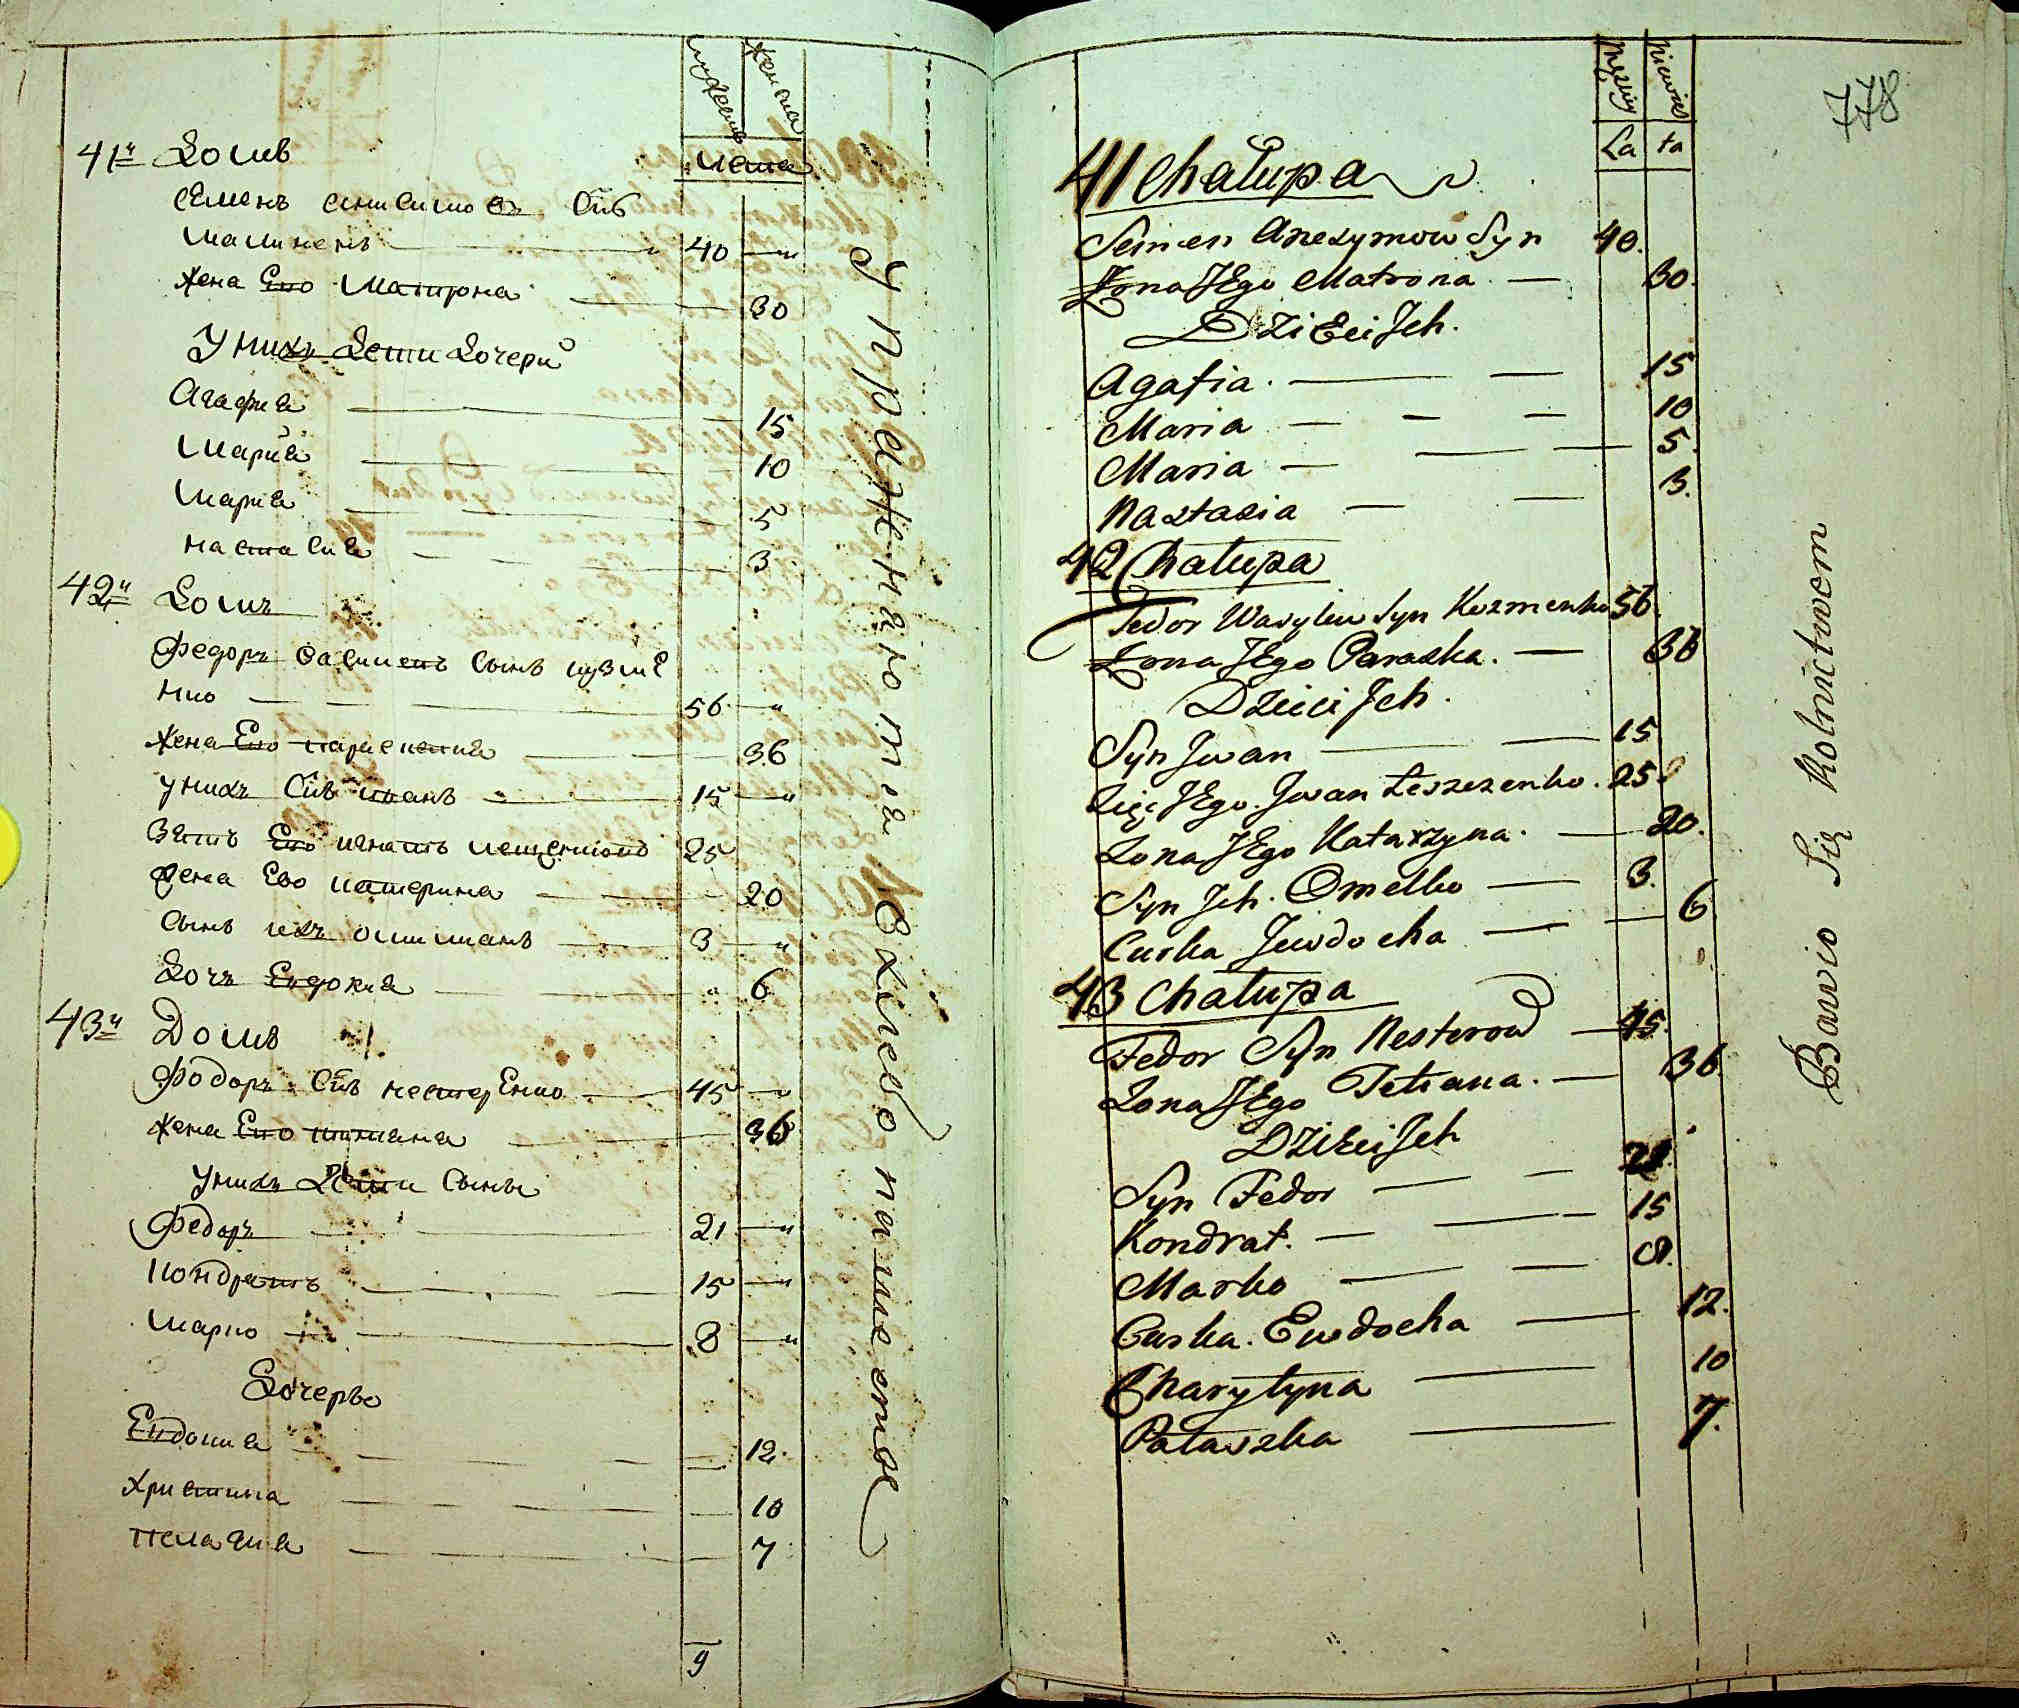 мужеска
женска
41й Домъ
лета
Семенъ
Калиненъ 40 "
жена Ево Матрона 30
У нихъ дети дочери
Агафиа 15
Мариа 10
Мариа 5
Настасиа 3
42й Домъ
Федоръ Василевъ Сынъ Кузме
нко 56 "
жена Ево Параскевиа 36
у нихъ Снъ Иванъ 15 "
Зять Ево 25
жена Ево Катерина 20
Сынъ ихъ 3 "
Дочъ Евдокиа " 6
43й Домъ
Фодоръ Снъ Нестеренко 45 "
жена Ево Татиана 36
У нихъ Дети Сыны
Федоръ 21 "
Кондратъ 15 "
Марко 8 "
Дочерье
Евдокиа 12
Христина 10
Пелагиа 7
9
Упражняютца в хлебопашестве
778
Męzkiy
Niewied
La ta
41 Chałupa
Semen Anezymow Syn 40.
Żona JEgo Matrona 30.
DziEci Jch.
Agafia 15
Maria 10
Maria 5.
Nastasia 3.
42 Chałupa
Fedor Wasylew Syn Kuzmenko 56.
Żona JEgo Paraska. 36
Dzieci Jch.
Syn Jwan 15
Zięć JEgo. Jwan Leszczenko. 25
Żona JEgo Katarzyna. 20.
Syn Jch. Omelko 3.
Curka Jewdocha 6
43 Chałupa
Fedor Syn Nesterow 45.
Żona JEgo Tetiana. 36
DziEci Jch
Syn Fedor 21.
Kondrat. 15
Marko 8.
Curka. Ewdocha 12.
Charytyna 10
Pałaszka 7.
Bawio Się Rolnictwem